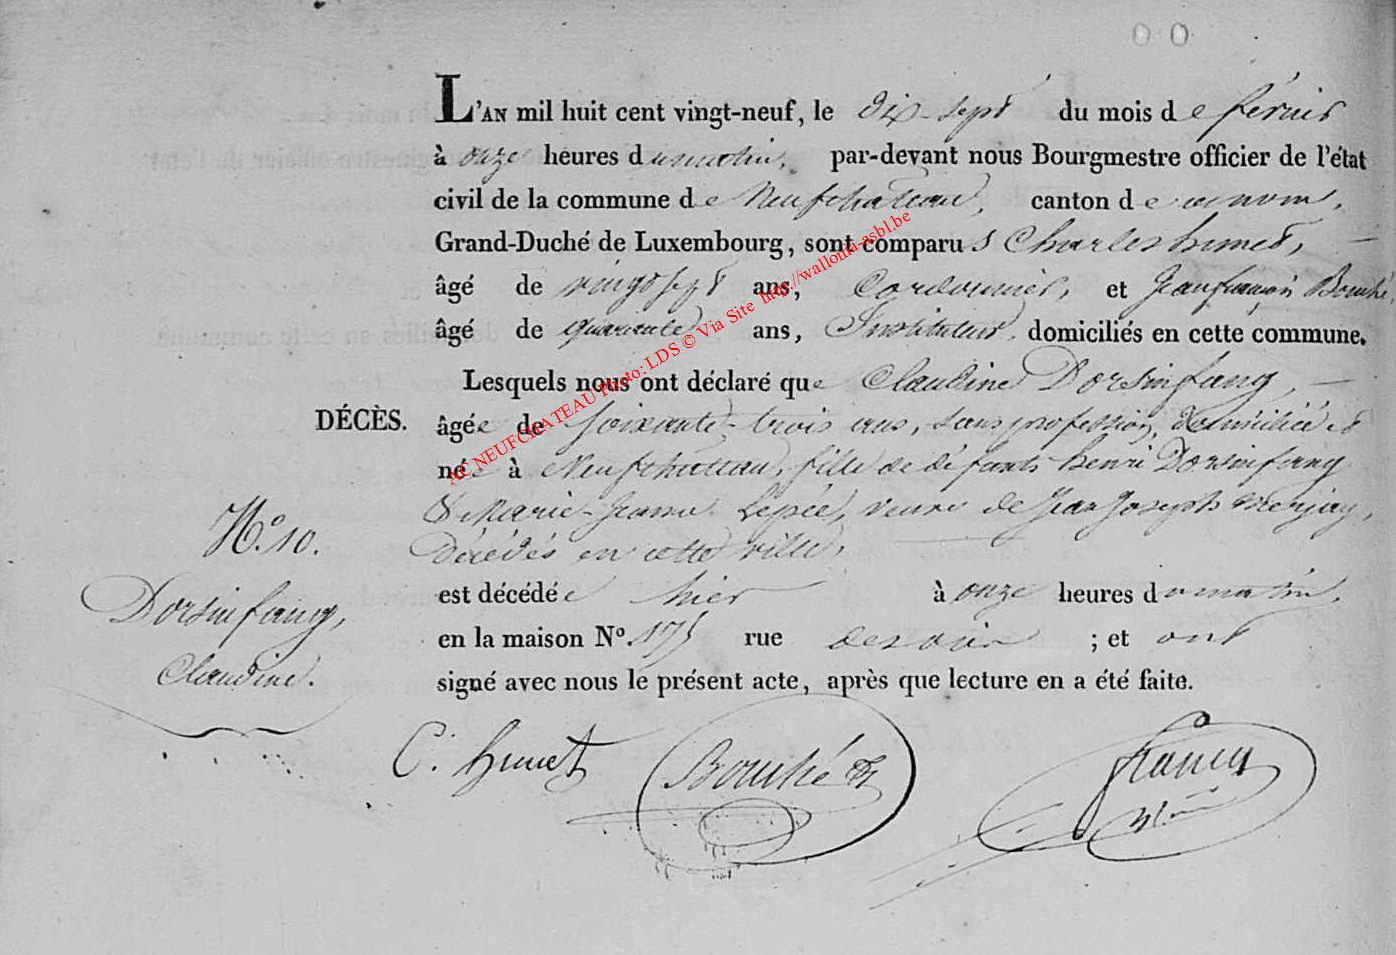 L'AN mil huit cent vingt-neuf, le dix-sept du mois de février
à onze heures du matin, par-devant nous Bourgmestre officier de l'état
civil de la commune de Neufchateau, canton de ce nom,
Grand-Duché de Luxembourg, sont comparus Charles hunet,
âgé de vingt sept ans, Cordonnier, et Jean françois Bouché
âgé de quarante ans, Instituteur, domiciliés en cette commune.
Lesquels nous ont déclaré que Claudine Dorsinfang,
DÉCÈS.
âgée de soixante-trois ans, sans profession, domiciliée et
née à Neufchateau, fille de défunts henri Dorsinfang
& Marie-Jeanne Lepée, veuve de Jean Joseph
décédés en cette ville,
N.º 10.
Dorsinfang,
Claudine.
est décédée hier à onze heures du matin,
en la maison Nº. 175 rue ; et ont
signé avec nous le présent acte, après que lecture en a été faite.
C. hunet Bouché
AC NEUFCHATEAU Photo: LDS © Via Site http://wallonia-asbl.be